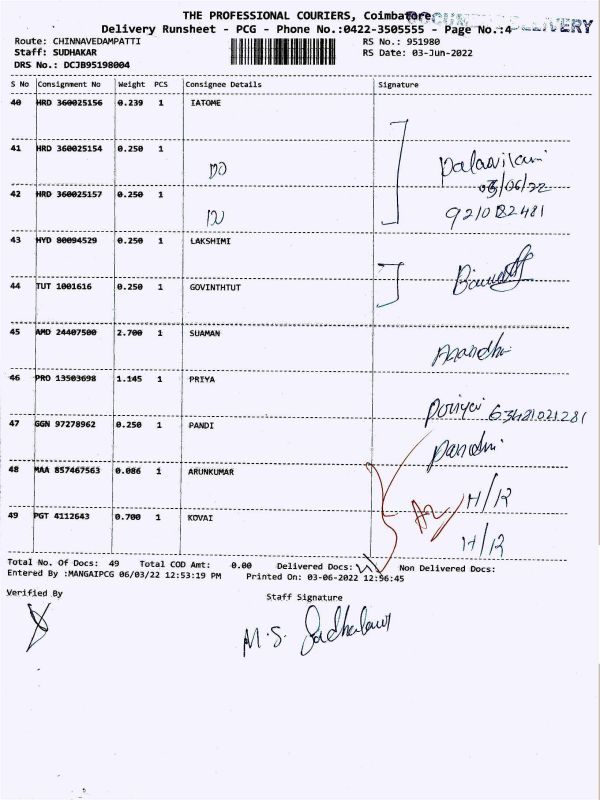 THE PROFESSIONAL COURIERS, Coimbatore
Delivery Runsheet - PCG - Phone No.:0422-3505555 - Page No.:4
DELIVERY
Route: CHINNAVEDAMPATTI RS No.: 951980
Staff: SUDHAKAR RS Date: 03-Jun-2022
DRS No.: DCJB95198004
S No Consignment No Weight PCS Consignee Details Signature
40 HRD 360025156 0.239 1 IATOME
41 HRD 360025154 0.250 1
DO
03/06/22
42 HRD 360025157 0.250 1
DO
9210182481
43 HYD 80094529 0.250 1 LAKSHIMI
44 TUT 1001616 0.250 1 GOVINTHTUT
45 AMD 24407500 2.700 1 SUAMAN
46 PRO 13503698 1.145 1 PRIYA
47 GGN 97278962 0.250 1 PANDI
48 MAA 857467563 0.086 1 ARUNKUMAR
49 PGT 4112643 0.700 1 KOVAI
Total No. Of Docs: 49 Total COD Amt: 0.00 Delivered Docs: Non Delivered Docs:
Entered By :MANGAIPCG 06/03/22 12:53:19 PM Printed On: 03-06-2022 12:56:45
Verified By Staff Signature
M.S.